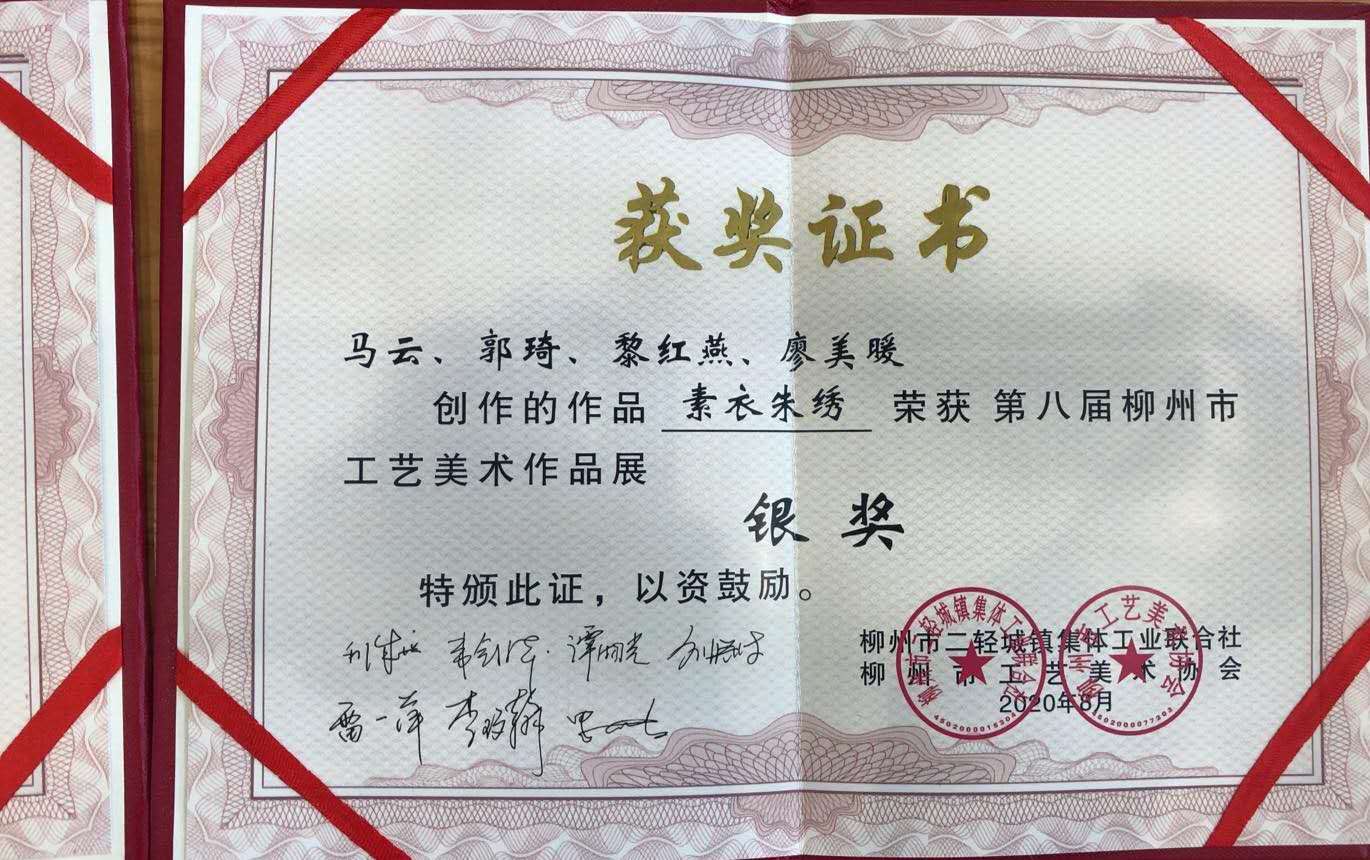 获奖证书
马云、郭琦、黎红燕、廖美暖
创作的作品 素衣朱绣 荣获 第八届柳州市
工艺美术作品展
银奖
特颁此证，以资鼓励。
柳州市二轻城镇集体工业联合社
柳州市工艺美术协会
2020年8月
雷一萍